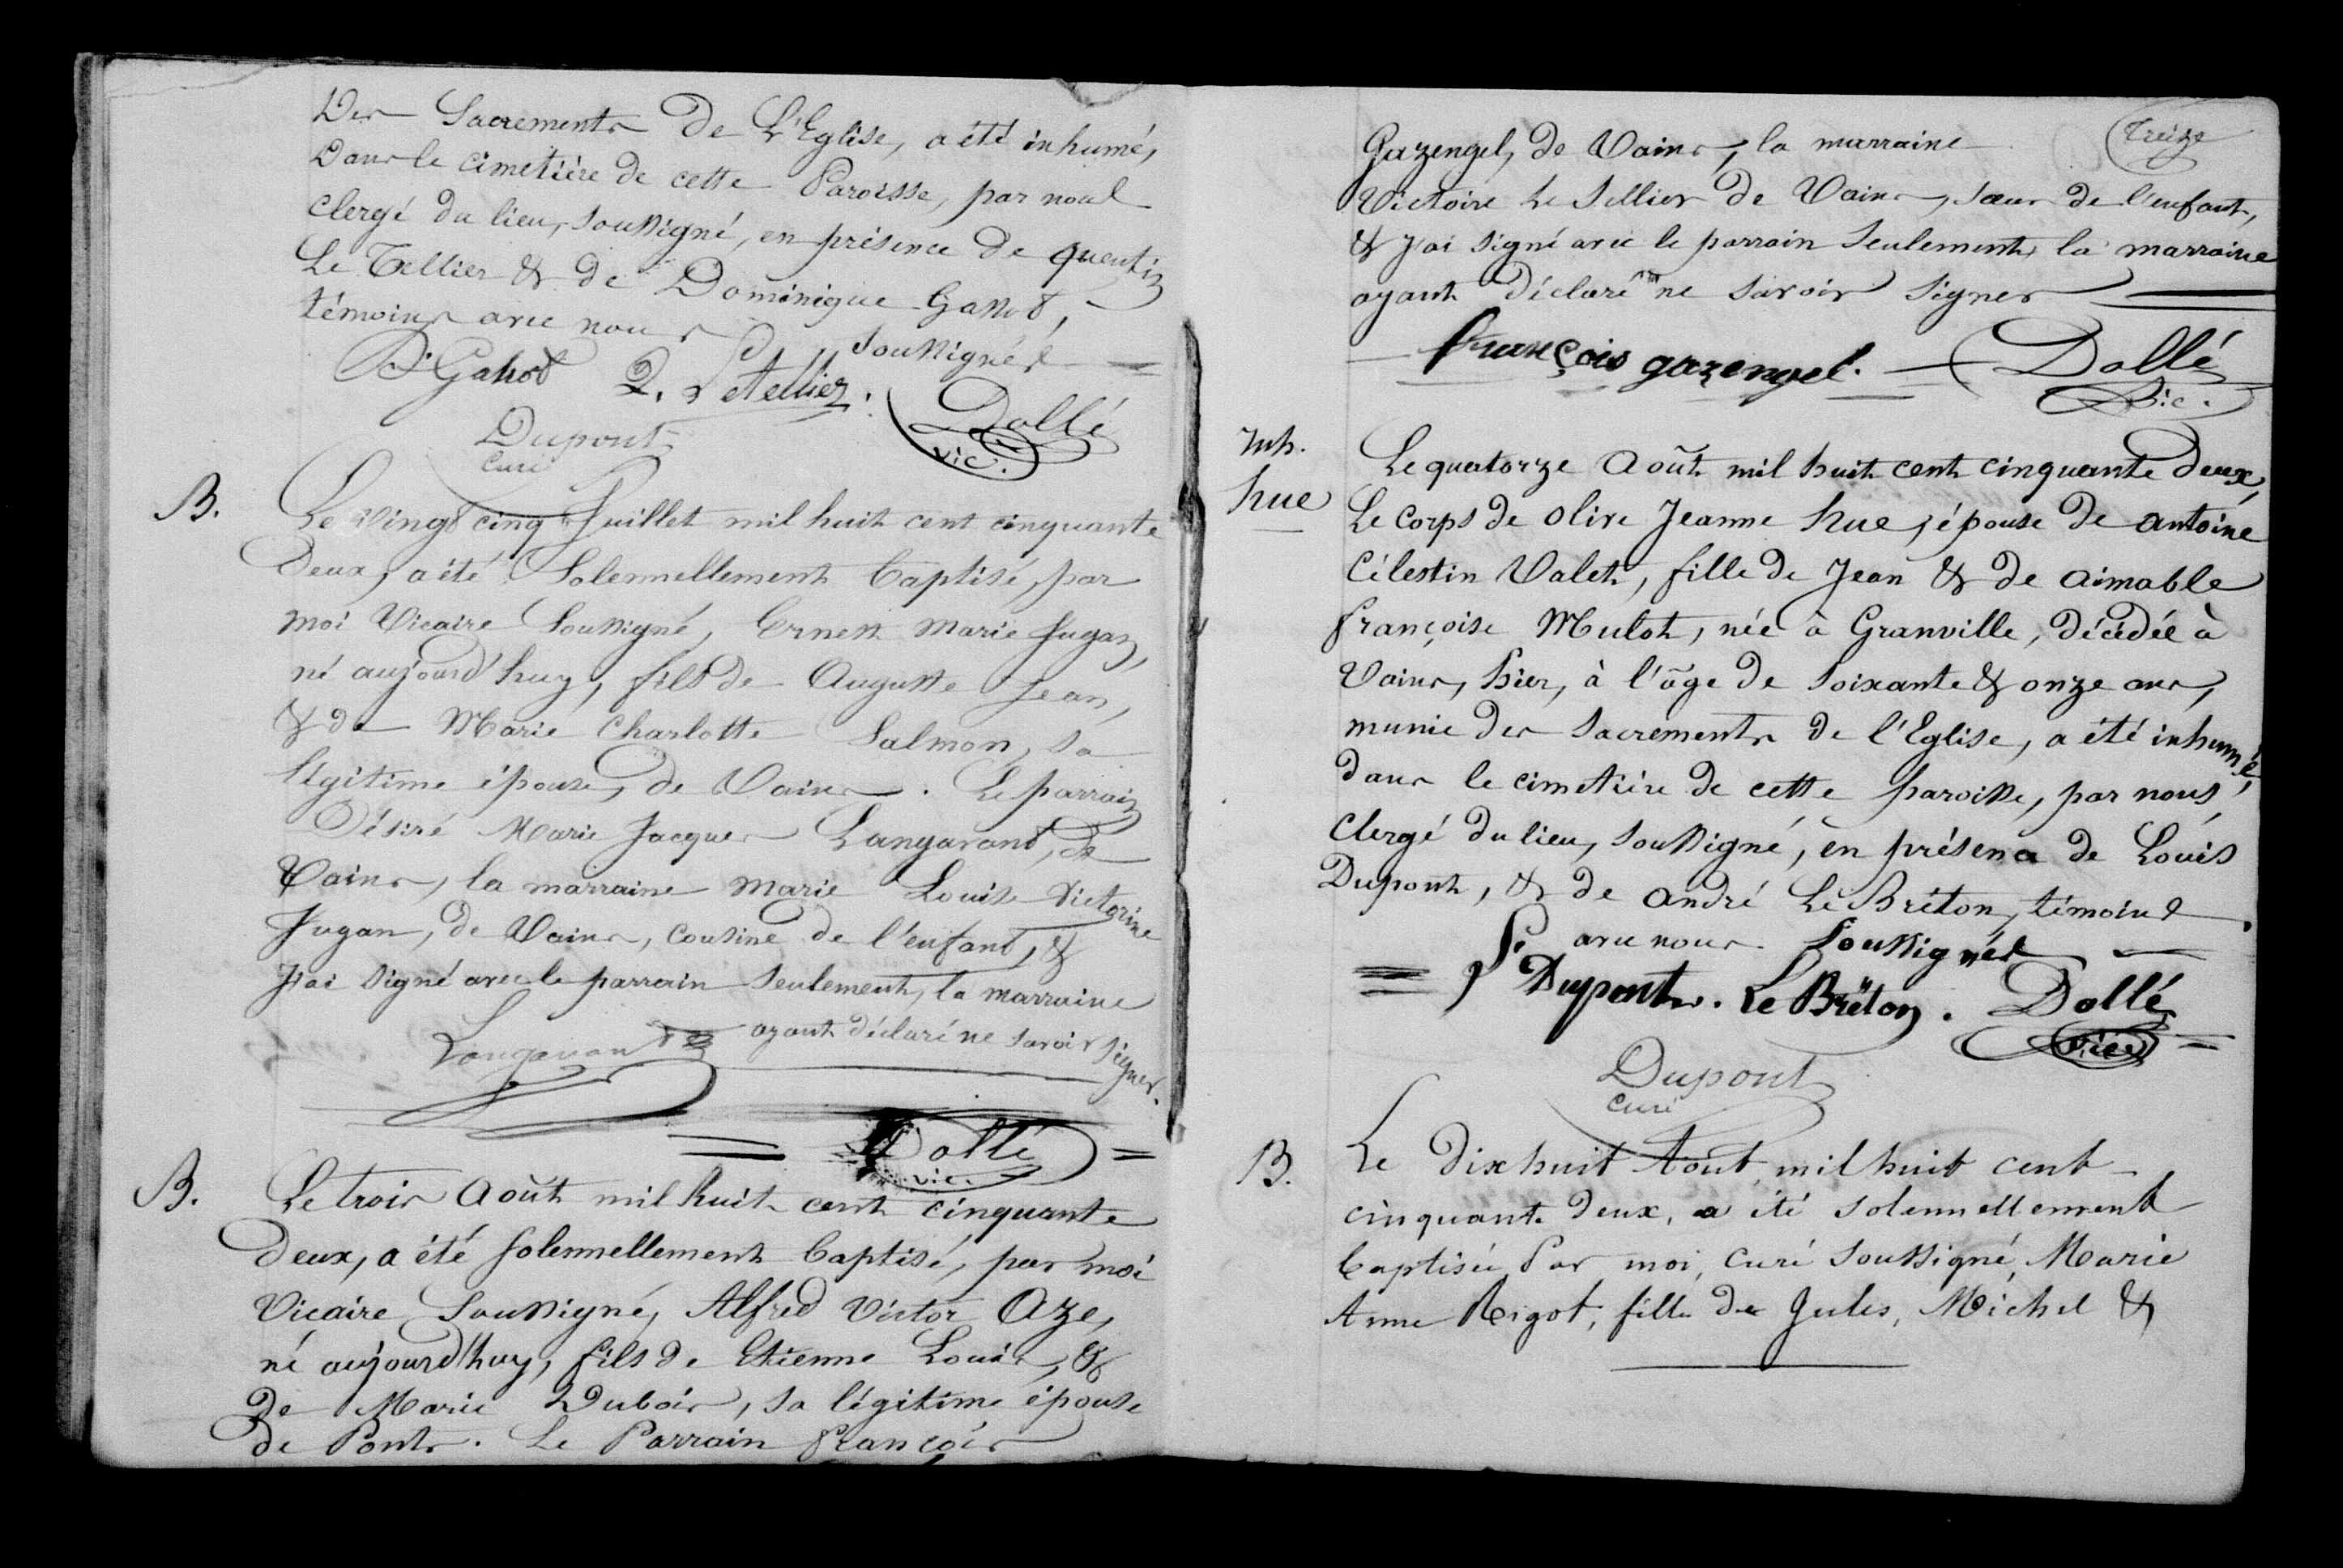 Des Sacrements de L'Eglise, a été inhumé,
Dans le cimetière de cette Paroisse, par nous
clergé du lieu, soussigné, en présence de quentin
Le Tellier & de Dominique Gahot,
témoins avec nous soussignés
D. Gahot Q. Letellier. Dollé
vic.
Dupont
curé
B.
Le vingt cinq Juillet mil huit cent cinquante
Deux, a été Solennellement Baptisé, par
moi Vicaire Soussigné, Ernest Marie Jugan,
né aujourd'huy, fils de Auguste Jean,
& de Marie Charlotte Salmon, sa
légitime épouse, de Vains. Le parrain
Désiré Marie Jacques Langavant, de
Vains, la marraine Marie Louise Victorine
Jugan, de Vains, cousine de l'enfant, &
j'ai signé avec le parrain seulement, la marraine
ayant déclaré ne savoir signer.
Langavant
Dollé
vic.
B.
Le trois Août mil huit cent cinquante
deux, a été solennellement Baptisé, par moi
Vicaire Soussigné, Alfred Victor Aze,
né aujourd'huy, fils de Etienne Louis, &
de Marie Dubois, sa légitime épouse
de Ponts. Le Parrain François
Treize
Gazengel, de Vains, la marraine
Victoire Le Sellier de Vains, sœur de l'enfant,
& j'ai signé avec le parrain seulement, la marraine
ayant déclaré ne savoir signer
françois gazengel. Dollé
Vic.
Inh.
hue
Le quatorze Août mil huit cent cinquante deux,
Le corps de olive Jeanne hue, épouse de antoine
Célestin Valet, fille de Jean & de aimable
françoise Mulot, née à Granville, décédée à
Vains, hier, à l'âge de soixante & onze ans,
munie des sacrements de l'Eglise, a été inhumée,
dans le cimetière de cette paroisse, par nous,
clergé du lieu, soussigné, en présence de Louis
Dupont, & de andré Le Bréton, témoins
avec nous soussignés
Dupont. Le Brëton. Dollé
vic.
Dupont
curé
B.
Le dix huit Aout mil huit cent
cinquante deux, a été solennellement
baptisée Par moi, curé soussigné, Marie
Anne Rigot, fille de Jules, Michel &